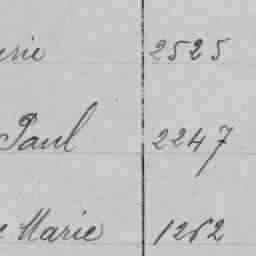 erie 2525
Paul 2247
e Marie 1262